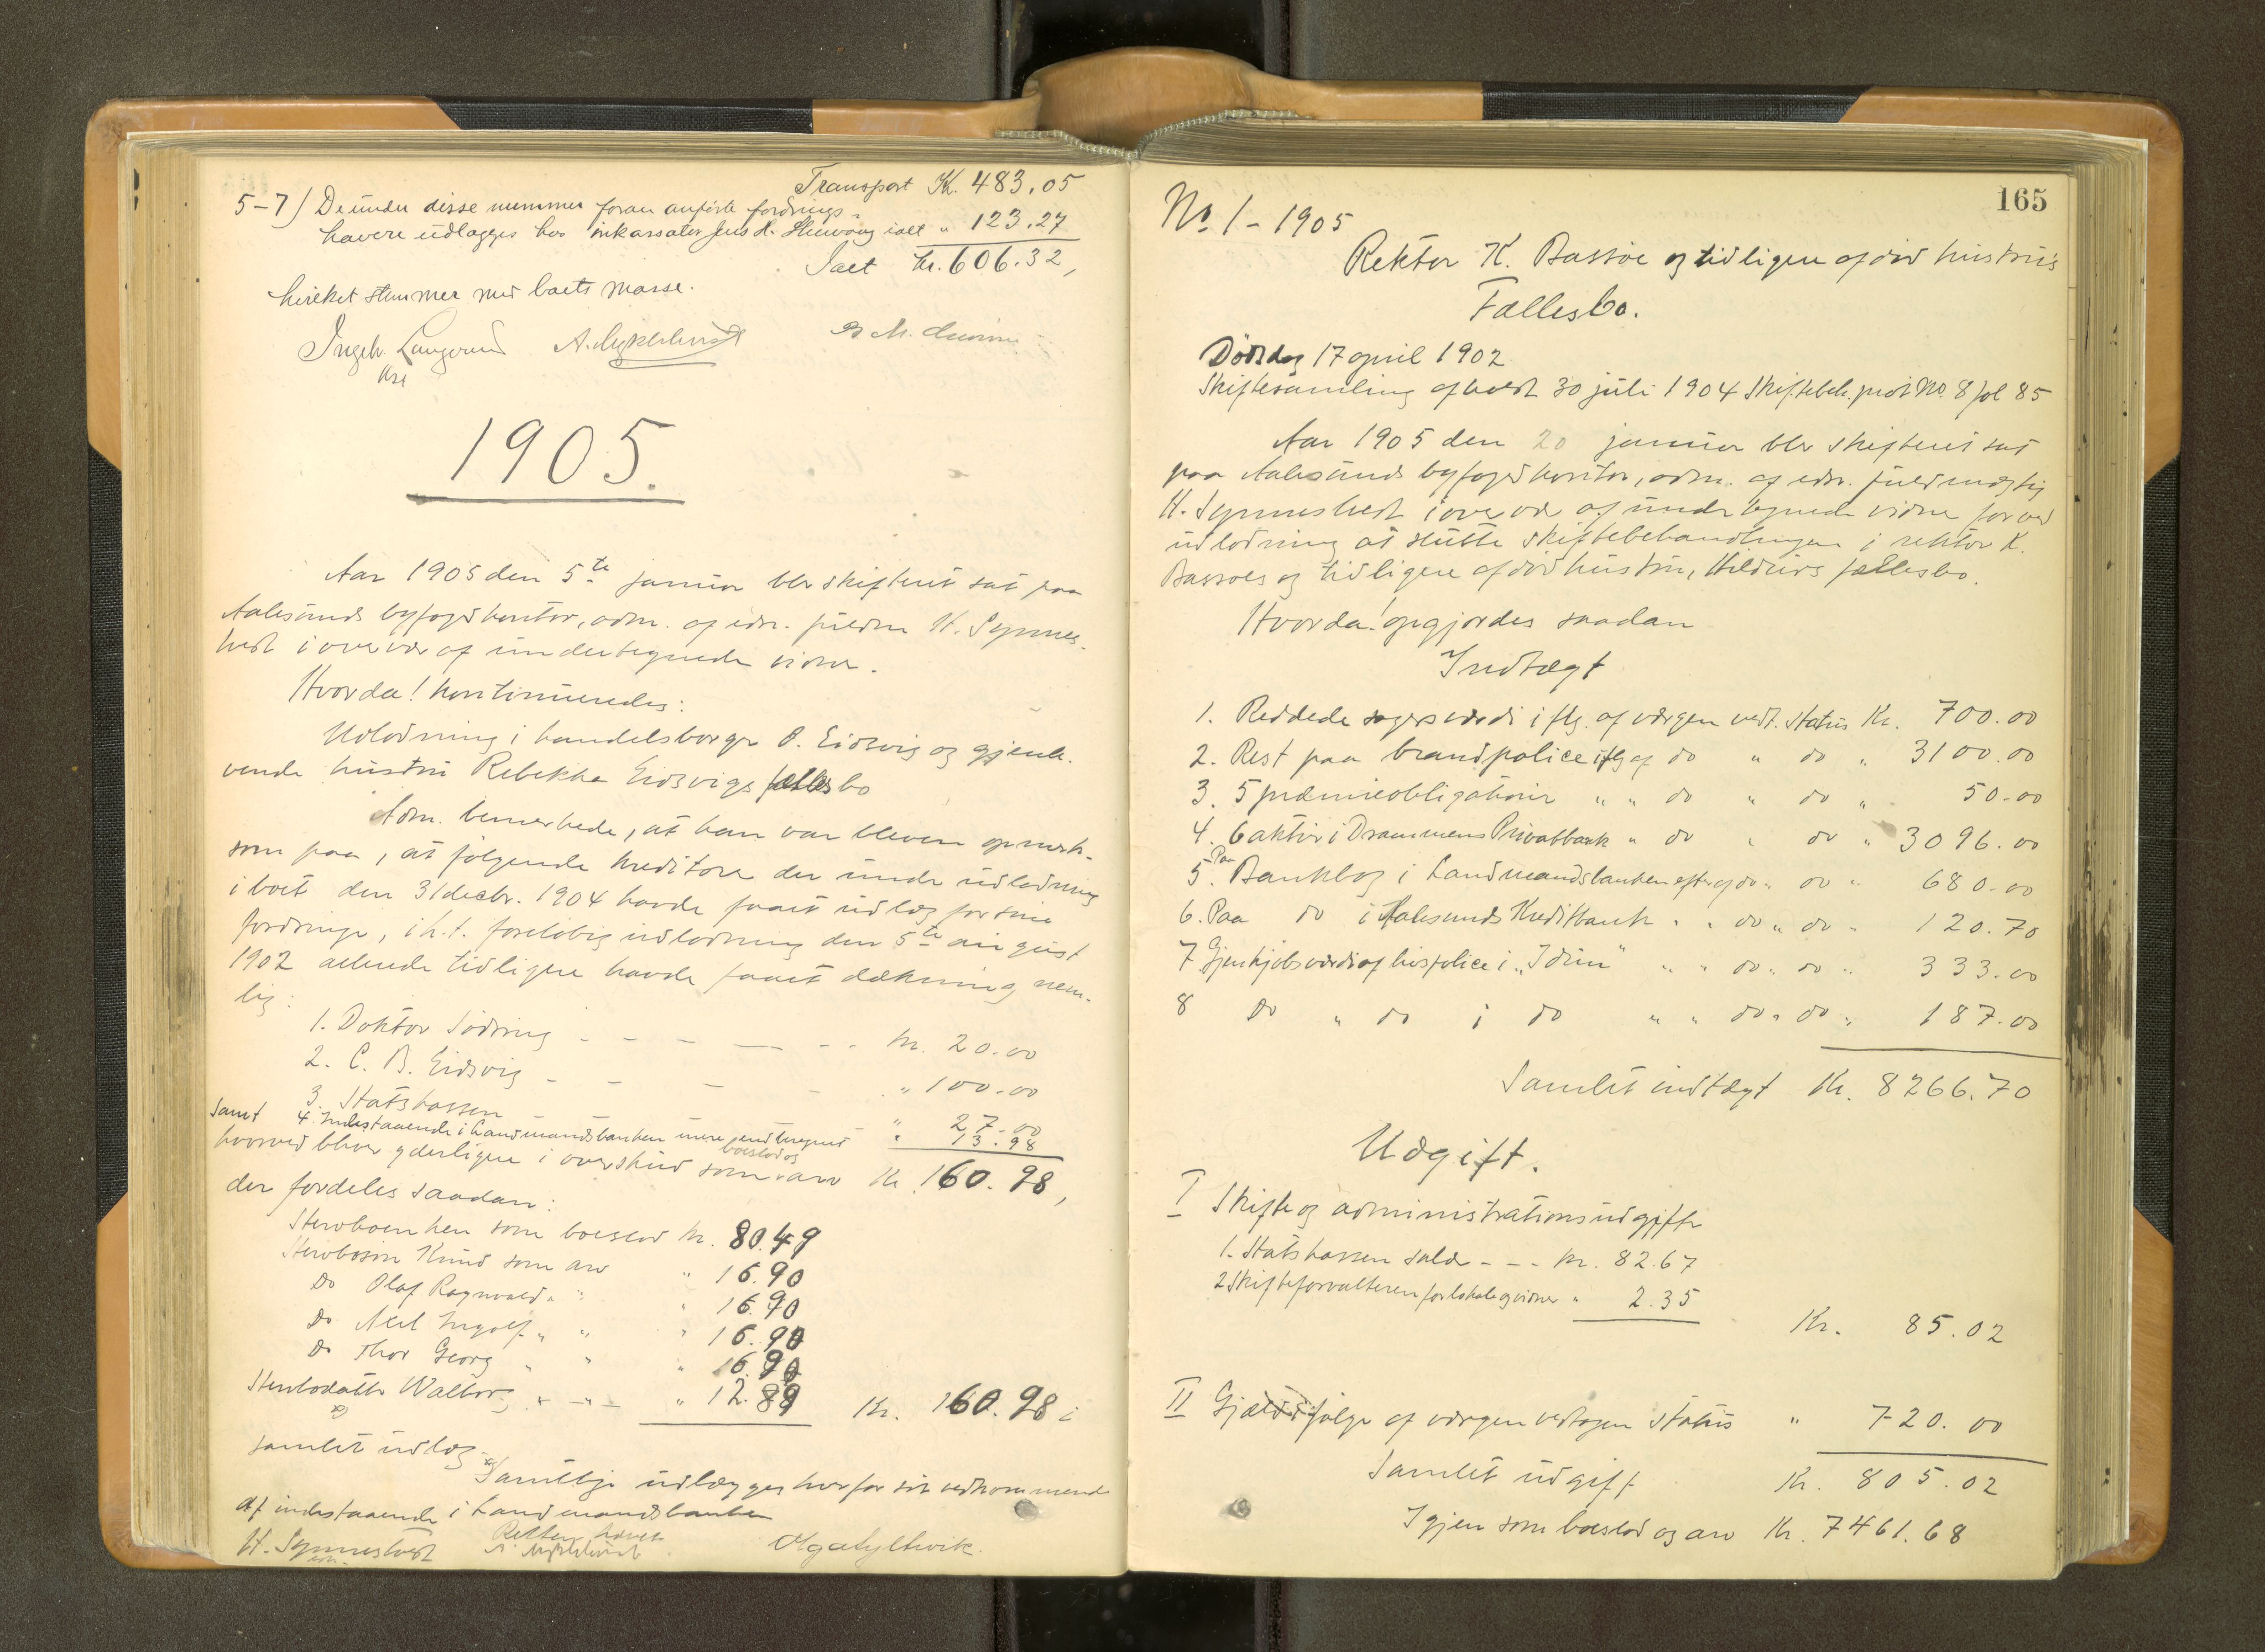 Transport Kr. 483.05
5-7) De under disse nummer foran anførte fordrings-
havere udlægges hos inkassator Jens A. ialt " 123.27
Ialt kr. 606.32,
hvilket stemmer med boets masse.
Ingeb. Langeund A. Myklebust
kst
1905.
Aar 1905 den 5te januar blev skifteret sat paa
Aalesunds byfogdkontor, adm. af edsv. fuldm H. Synnes-
tvedt i overvær af undertegnede vidner.
Hvorda! kontinueredes:
Udlodning i handelsborger O. Eidsvig og gjenle-
vende hustru Rebekka Eidsvigs fællesbo
Adm. bemerkede, at han var bleven opmerk-
som paa, at følgende kreditorer der under udlodning
i boet den 31 decbr. 1904 havde faaet udlæg for sine
fordringer, i h.t. foreløbig udlodning den 5te august
1902 allerede tidligere havde faaet dækning nem-
lig:
1. Doktor Sødring - - - - - kr. 20.00
2. C. B. Eidsvig - - - - " 100.00
3. Statskassen - " 27.00
samt 4. Indestaaende i Landmandsbanken mere end beregnet " 13.98
hvorved bliver yderligere i overskud som boeslod og arv Kr. 160.98,
der fordeles saadan:
Stervboenken som boeslod kr. 80.49
Stervbosøn Knud som arv " 16.90
Do Olaf Ragnvald " " " 16.90
Do Axel Ingolf " " " 16.90
Do Thor Georg " " " 16.90
Stervbodatter Walborg " - " - " 12.89 Kr. 160.98 i
samlet udlæg.
Samtlige udlægges hver for sit vedkommende
af indestaaende i Landmandsbanken
Retten hævet
H. Synnestvedt A. Myklebust
edsv.
165
No. 1 - 1905
Rektor K. Bassøe og tidligere afdød hustru's
Fællesbo.
Dødsdag 17 april 1902
Skiftesamling afholdt 30 juli 1904 Skiftebeh. prot No. 8 fol 85
Aar 1905 den 20 januar blev skifteret sat
paa Aalesunds byfogdkontor, adm. af edsv. fuldmægtig
H. Synnestvedt i overvær af undertegnede vidner for ved
udlodning at slutte skiftebehandlingen i rektor K.
Bassøes og tidligere afdød hustru, Hildurs fællesbo.
Hvorda! opgjordes saadan
Indtægt
1. Reddede sagers værdi iflg. af værgen vedt. status Kr. 700.00
2. Rest paa brandpolice iflg af do " do " 3100.00
3. 5 præmieobligationer " " do " do " 50.00
4. 6 aktier i Drammens Privatbank " do " do " 3096.00
5. Paa Bankbog i Landmandsbanken efter af do " do " 680.00
6. Paa do i Aalesunds Kreditbank " " do " do " 120.70
7 Gjenkjøbsværdi af livspolice i "Idun" " " do " do " 333.00
8 Do " do i do " " do " do " 187.00
Samlet indtægt Kr. 8266.70
Udgift.
I Skifte og administrationsudgifter
1. Statskassen saldo - - - kr. 82.67
2 Skifteforvalteren for lokale og vidner " 2.35
Kr. 85.02
II Gjæld ifølge af værgen vedtagen status " 720.00
Samlet udgift Kr. 805.02
Igjen som boeslod og arv Kr. 7461.68